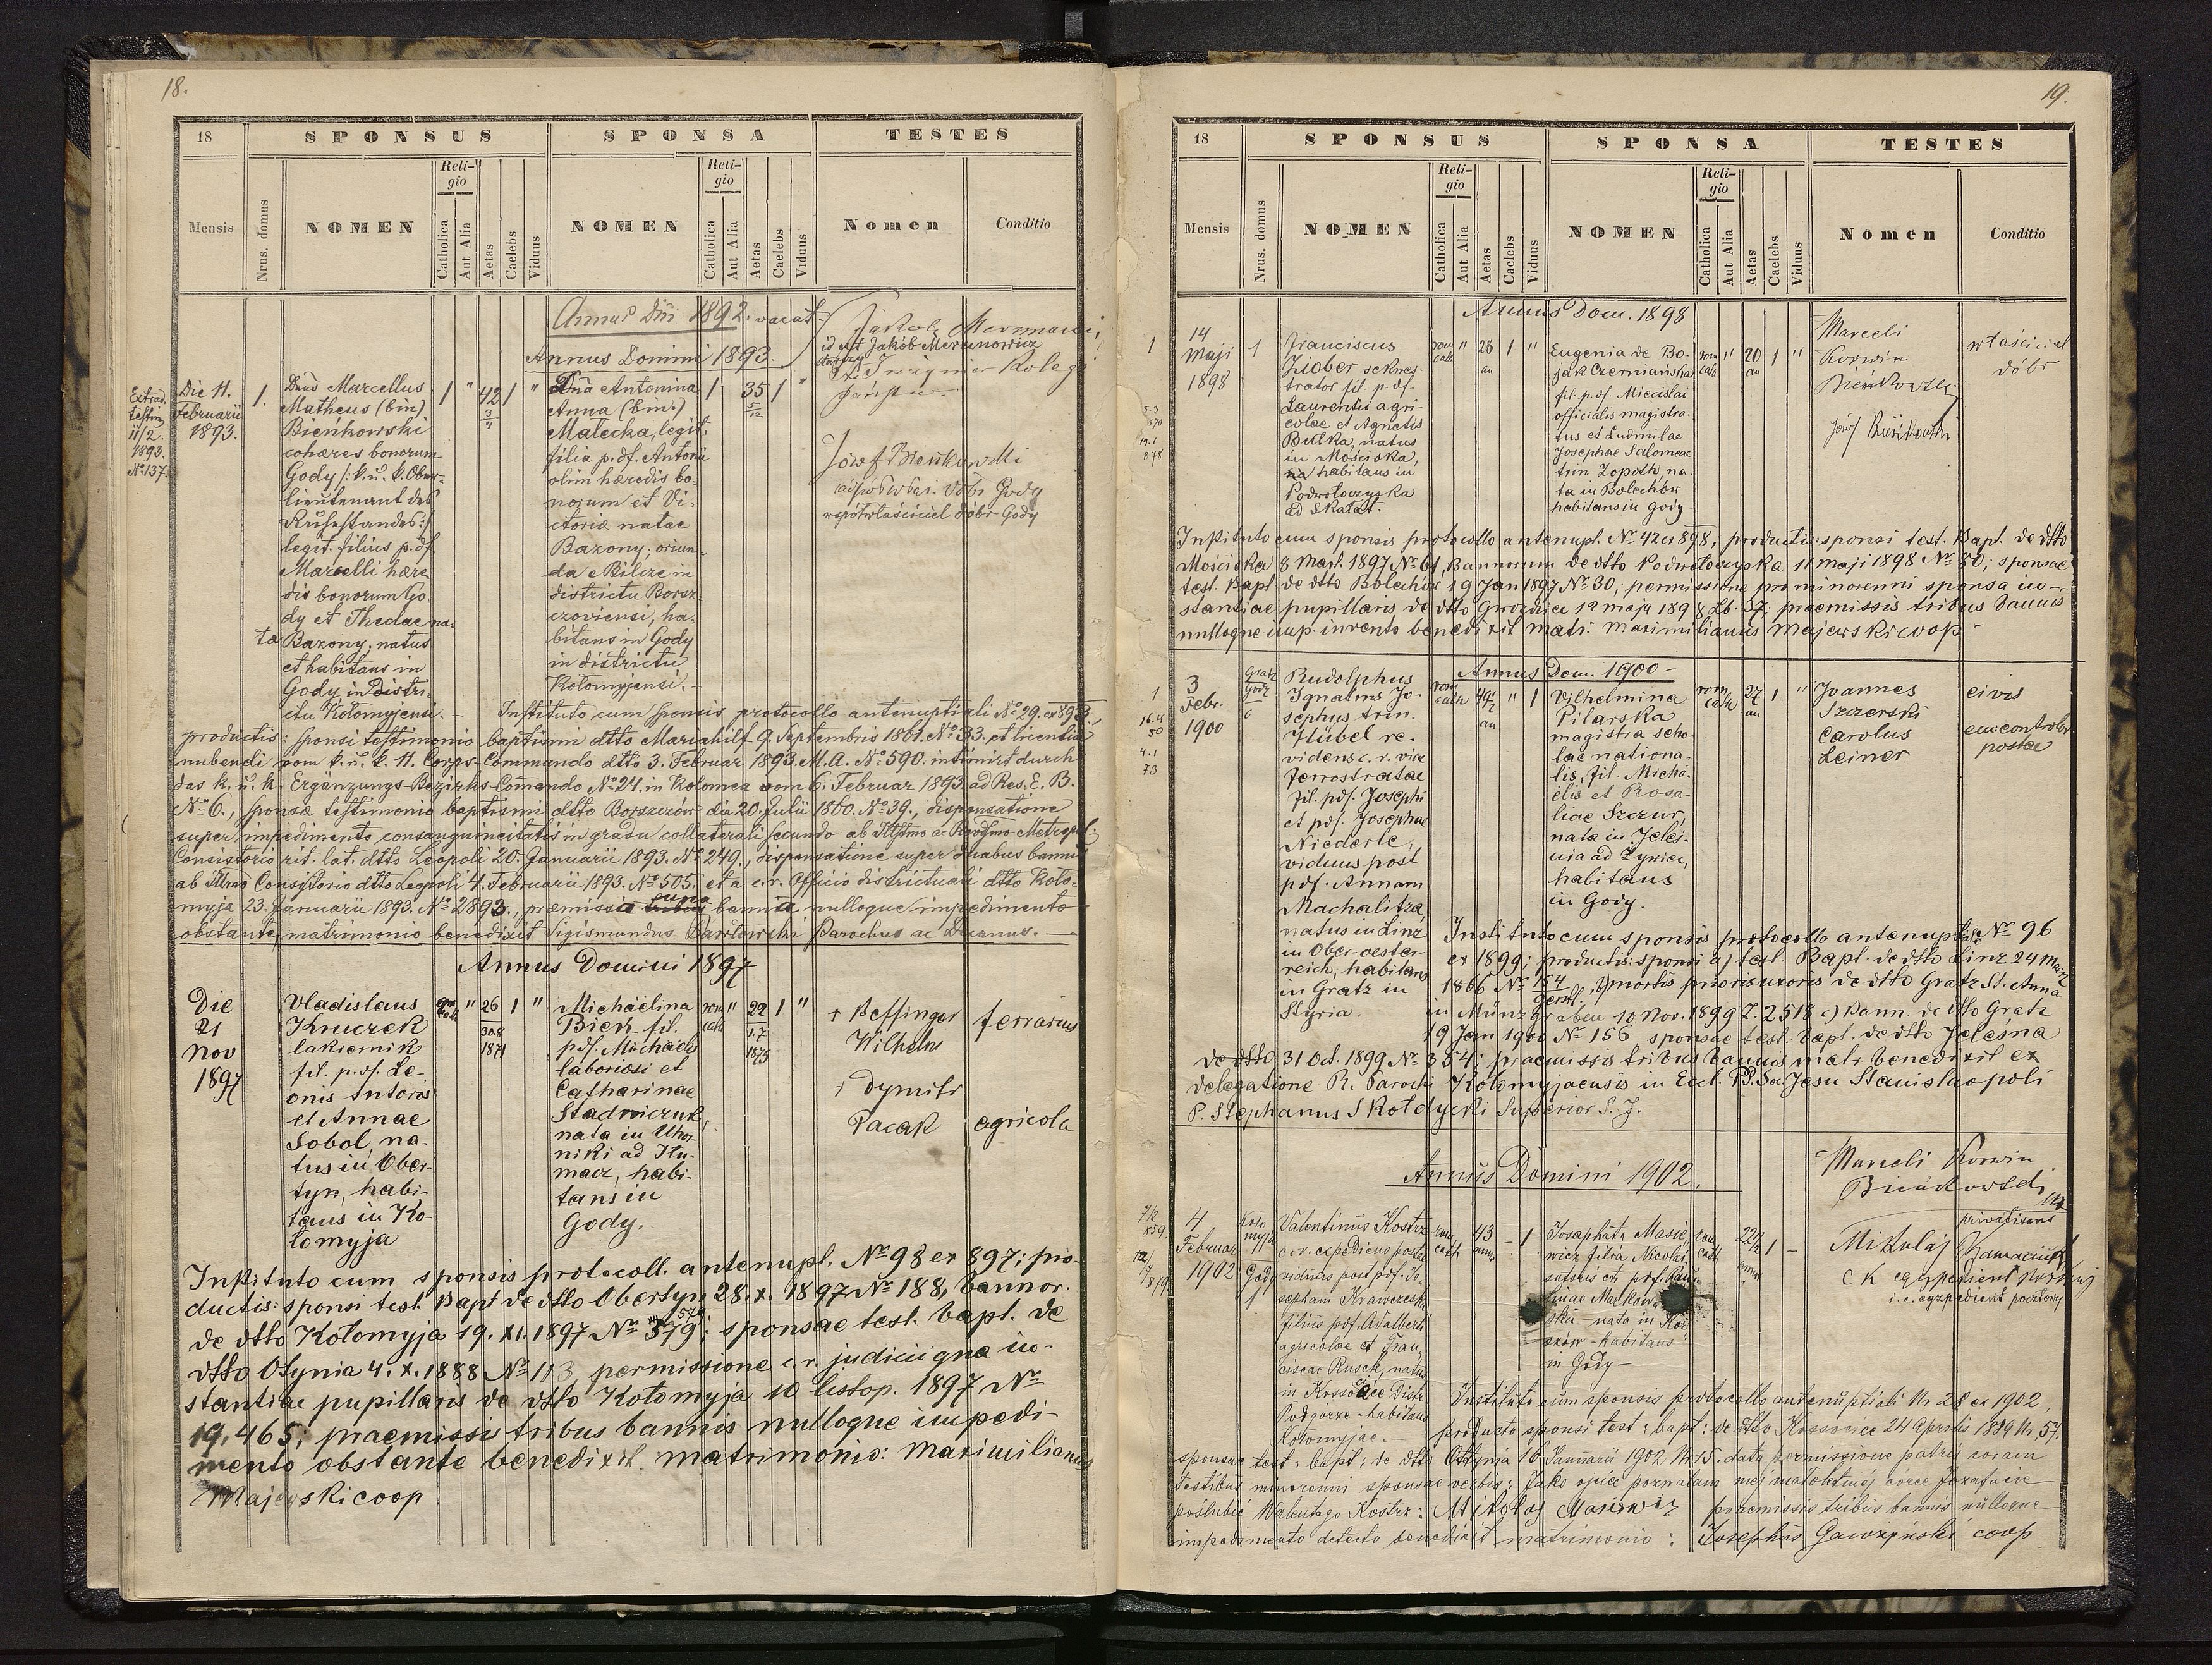 18.
18
SPONSUS
SPONSA
TESTES
Mensis
Nrus. domus
NOMEN
Reli-
gio
Catholica
Aut Alia
Aetas
Caelebs
Viduus
NOMEN
Reli-
gio
Catholica
Aut Alia
Aetas
Caelebs
Viduus
Nomen
Conditio
Annus Dni 1892. vacat.
Annus Domini 1893.
Extrad.
testim.
11/2.
1893.
No 137.
Die 11.
Februarii
1893.
1.
Dnus Marcellus
Matheus (bin)
Bieńkowski
cohæres bonorum
Gody /: k. u. k. Ober-
lieutenant des
Ruhestandes :/
legit. filius p. df.
Marcelli hære-
dis bonorum Go-
dy et Theclae na-
ta Bazony, natus
et habitans in
Gody in Distri-
ctu Kołomyjensi. –
1 " 42 3/4 1 "
Dna Antonina
Anna (bin.)
Małecka, legit.
filia p. df. Antonii
olim hæredis bo-
norum et Vi-
ctoriæ natae
Bazony; oriun-
da e Bilcze in
districtu Borsz-
czoviensi, ha-
bitans in Gody
in districtu
Kołomyjensi. –
1 35 5/12 1 "
id est Jakób Merunowicz
starszy
Józef Bieńkowski
współwłaściciel dóbr Gody
Instituto cum sponsis protocollo antenuptiali No 29. ex 893.,
productis: sponsi testimonio baptismi dtto Mariahilf 9. Septembris 1861. No 33. et licentia
nubendi vom k. u. k. 11. Corps-Commando dtto 3. Februar 1893. M.A. No 590. intimirt durch
das k. u. k. Ergänzungs-Bezirks-Comando No 24. in Kolomea vom 6. Februar 1893. ad Res. E. B.
No 6., sponsæ testimonio baptismi dtto Borszczów dia 20. Julii 1860. No 39., dispensatione
super impedimento consanguineitatis in gradu collaterali secundo ab Illstmo ac Rvdssmo Metropol.
Consistorio rit. lat. dtto Leopoli 20. Januarii 1893. No 249., dispensatione super duabus bannis
ab Illmo Consistorio dtto Leopoli 4. Februarii 1893. No 505. et a c. r. Officio districtuali dtto Koło-
myja 23. Januarii 1893. No 2893., præmissa una bannis nulloque impedimento
obstante, matrimonio benedixit Sigismundus Pawłowski Parochus ac Decanus. –
Annus Domini 1897
Die
21
Nov
1897
Vladislaus
Knuczek
lakiernik
fil. p. df. Le-
onis sutoris
et Annae
Sobol, na-
tus in Ober-
tyn, habi-
tans in Ko-
łomyja
" 26 1 "
1871
Michaelina
Bick fil.
pdf. Michaelis
laboriosi et
Catharinae
Stadniczuk,
nata in Uhor-
niki ad Tłu-
macz, habi-
tans in
Gody.
rom
cath
" 22 1 "
1875
+ Beffinger
Wilhelm
ferrarius
+ Dymitr
Pacak
agricola
Instituto cum sponsis protocoll. antenupt. No 98 ex 897; pro-
ductis: sponsi test. Bapt de dtto Obertyn 28. X. 1897 No 188, bannor.
de dtto Kołomyja 19. XI. 1897 No 579; sponsae test. bapt. de
dtto Otynia 4. X. 1888 No 113, permissione c. r. judicii qua in-
stantiae pupillaris de dtto Kołomyja 10 listop. 1897 No
19.465; praemissis tribus bannis nulloque impedi-
mento obstante benedixit matrimonio: Maximilianus
Majewski coop
19.
18
SPONSUS
SPONSA
TESTES
Mensis
Nrus. domus
NOMEN
Reli-
gio
Catholica
Aut Alia
Aetas
Caelebs
Viduus
NOMEN
Reli-
gio
Catholica
Aut Alia
Aetas
Caelebs
Viduus
Nomen
Conditio
Annus Dom. 1898
1
14
Maji
1898
1
Franciscus
Ziober seknes-
trator fil. p. df.
Laurentii agri-
colae et Agnetis
Butka, natus
in Mościska,
habitans in
Podwołoczyska
ad Skałat.
rom
cath
" 28 an 1 "
Eugenia de Bo-
jak Czerniańska
fil. p. df. Miecislai
officialis magistra-
tus et Ludmilae
Josephae Salomeae
trin. Zopoth, na-
ta in Bolechów
habitans in Gody
rom
cath
" 20 an 1 "
Marceli
Korwin
Bieńkowski
właściciel
dóbr
Józef Bieńkowski
Instituto cum sponsis protocollo antenupt. No 42 ex 898, productis: sponsi test. Bapt. de dtto
Mościska 8 Mart. 1897 No 61, Bannorum de dtto Podwołoczyska 11 maji 1898 No 80; sponsae
test. Bapt de dtto Bolechów 19 Jan 1897 No 30, permissione pro minorenni sponsa in-
stantiae pupillaris de dtto Gwozdziec 12 maja 1898 Lb. 37; praemissis tribus bannis
nulloque imp. invento benedixit matr. Maximilianus Majewski coop
Annus Dom. 1900 –
1
3
Febr.
1900
Gratz
Gody
6
Rudolphus
Ignatius Jo-
sephus trin.
Hübel re-
videns c. r. viae
ferrostratae
fil. pdf. Josephi
et pdf. Josephae
Niederle,
viduus post
pdf. Annam
Machalitza,
natus in Linz
in Ober-oester-
reich, habitans
in Gratz in
Styria.
rom
cath
49 1/2 an " 1
Vilhelmina
Pilarska
magistra scho-
lae nationa-
lis, fil. Micha-
elis et Rosa-
liae Szczur,
nata in Jeleś-
nia ad Żywiec,
habitans
in Gody.
rom
cath
27 an 1 "
Joannes
Szczerski
Carolus
Leiner
civis
em: controlor
postae
Instituto cum sponsis protocollo antenuptiali No 96
ex 1899; productis: sponsi a) test. Bapt. de dtto Linz 24 Marz
1866 No 154, b) mortis prioris uxoris de dtto Gratz St. Anna
in Münzgraben 10 Nov. 1899 Z. 2518 c) Bann. de dtto Gratz
19 Jan 1900 No 156, sponsae test. bapt. de dtto Jeleśnia
de dtto 31 Oct. 1899 No 354; praemissis tribus bannis matr. benedixit ex
delegatione R. Parochi Kołomyjaensis in Eccl. PP. Soc. Jesu Stanislaopoli
P. Stephanus Skołdycki Superior S. J.
Annus Domini 1902.
Marceli Korwin
Bieńkowski
privatisans
4
Februar
1902
Koło
myja
Gody
1
Valentinus Kostrz
c. r. expediens postae
viduus post pdf. Jo-
sepham Krawczeska
filius pdf. Adalberti
agricolae et Fran-
ciscae Rusek, natus
in Kossocice Distr.
Podgórze – habitans
Kołomyjae. –
rom
cath
43 – 1
Josaphata Masie-
wicz filia Nicolai
sutoris et pdf. Pau-
linae Markow-
ska – nata in
habitans
in Gody –
rom
cath
22 1/2 1 –
Mikołaj
CK egzpedient
i. e. egzpedient pocztowy
Instituto cum sponsis protocollo antenuptiali Nr 28 ex 1902,
producto sponsi test: bapt: de dtto Kossocice 24 Aprilis 1889 Nr 57.
sponsae test: bapt: de dtto Ottynia 16 Januarii 1902 Nr 15. data permissione patris coram
testibus minorenni sponsae verbis: Jako ojciec pozwalam mej małoletniej córce Jozafacie
poślubić Walentego Kostrz: Mikołaj Masiewicz praemissis tribus bannis nulloque
impedimento detecto benedixit matrimonio: Josephus Gawrzyński coop